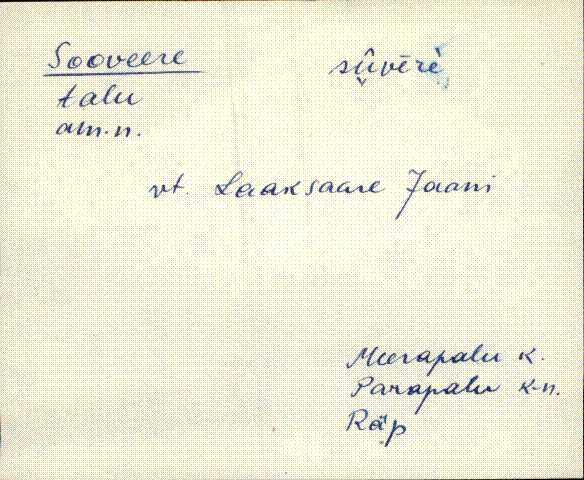 Sooveere sŷ̬vērè
talu
am.n.
vt. Laaksaare Jaani
Meerapalu k.
Parapalu k-n.
Räp